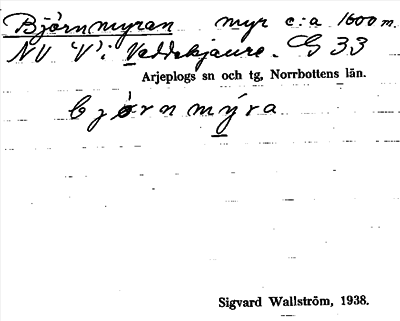 Björnmyran myr c:a 1600 m.
NV "V" i Veddekjaure. G 33
Arjeplogs sn och tg, Norrbottens län.
bjørnmýra
Sigvard Wallström, 1938.